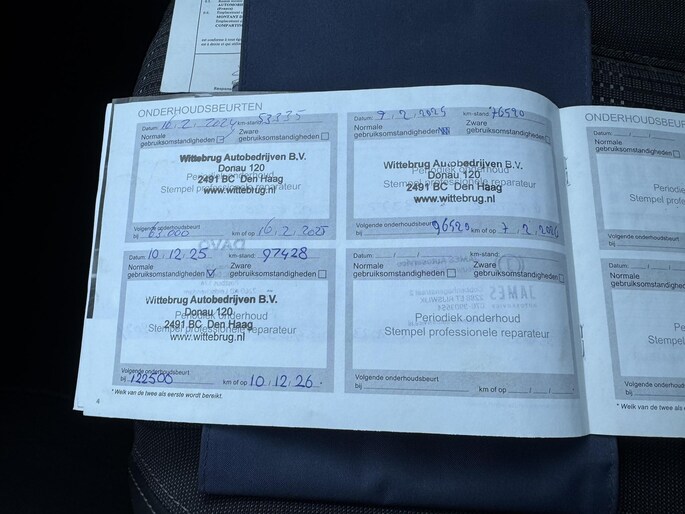 ONDERHOUDSBEURTEN
Datum: 16.2.2024 km-stand: 53335
Normale gebruiksomstandigheden
Zware gebruiksomstandigheden
Wittebrug Autobedrijven B.V.
Donau 120
Periodiek onderhoud
2491 BC Den Haag
Stempel professionele reparateur
www.wittebrug.nl
Volgende onderhoudsbeurt
bij 63.000 km of op 16.2.2025
Datum: 7.2.2025 km-stand: 76520
Normale gebruiksomstandigheden
Zware gebruiksomstandigheden
Wittebrug Autobedrijven B.V.
Donau 120
Periodiek onderhoud
2491 BC Den Haag
Stempel professionele reparateur
www.wittebrug.nl
Volgende onderhoudsbeurt
bij 96520 km of op 7.2.2026
Datum: 10.12.25 km-stand: 97428
Normale gebruiksomstandigheden
Zware gebruiksomstandigheden
Wittebrug Autobedrijven B.V.
Donau 120
Periodiek onderhoud
2491 BC Den Haag
Stempel professionele reparateur
www.wittebrug.nl
Volgende onderhoudsbeurt
bij 122500 km of op 10.12.26
Datum: km-stand:
Normale gebruiksomstandigheden
Zware gebruiksomstandigheden
Periodiek onderhoud
Stempel professionele reparateur
Volgende onderhoudsbeurt
bij km of op
* Welk van de twee als eerste wordt bereikt.
ONDERHOUDSBEUR
Datum:
Normale
gebruiksomstandig
Perio
Stempel prof
Volgende onderhoudsbeurt
bij
Datum:
Normale
gebruiksomstandig
Perio
Stempel prof
Volgende onderhoudsbeurt
bij
* Welk van de twee als